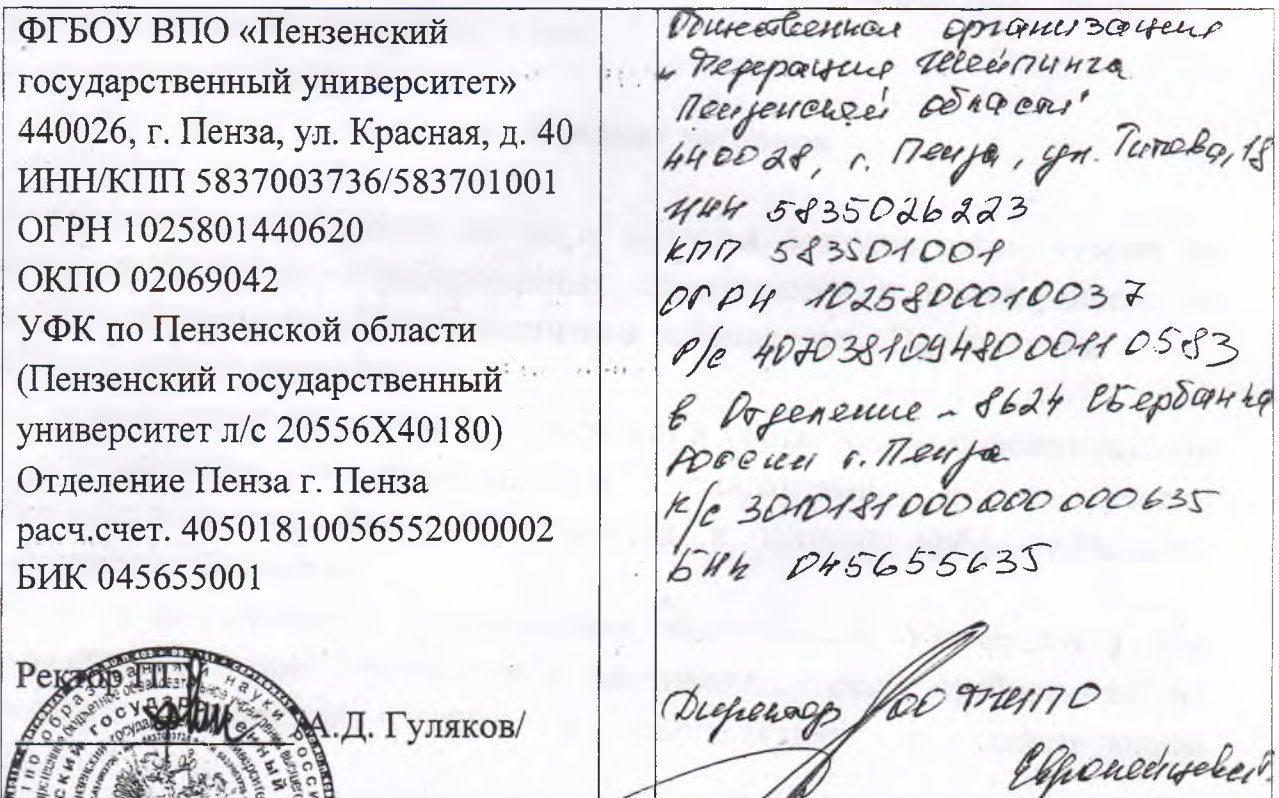 ФГБОУ ВПО «Пензенский
государственный университет»
440026, г. Пенза, ул. Красная, д. 40
ИНН/КПП 5837003736/583701001
ОГРН 1025801440620
ОКПО 02069042
УФК по Пензенской области
(Пензенский государственный
университет л/с 20556Х40180)
Отделение Пенза г. Пенза
расч.счет. 40501810056552000002
БИК 045655001
Ректор ПГУ
/А.Д. Гуляков/
Общественная организация
"Федерация шейпинга
Пензенской области"
440028, г. Пенза, ул. Титова, 18
ИНН 5835026223
КПП 583501001
ОГРН 1025800010037
Р/с 40703810948000110583
в Отделение - 8624 Сбербанка
России г. Пенза
К/с 30101810000000000635
БИК 045655635
Директор ОО ФШПО